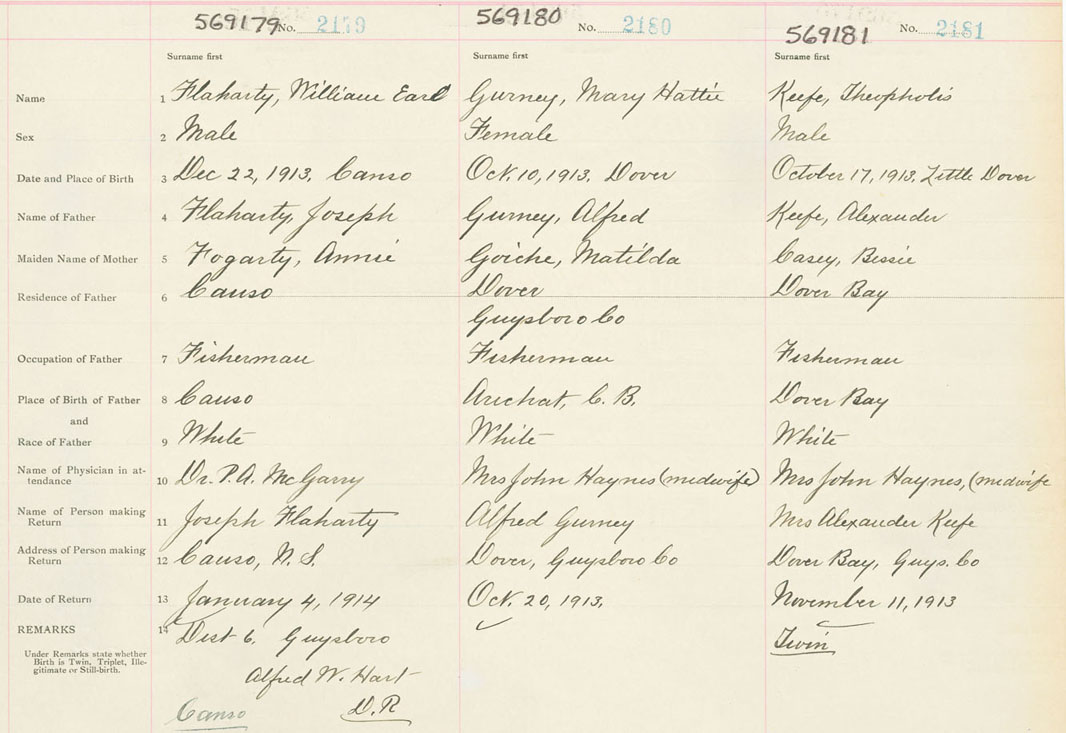 569179 No. 2179 569180 No. 2180 569181 No. 2181
Surname first Surname first Surname first
Name 1 Flaharty, William Earl Gurney, Mary Hattie Keefe, Theopholis
Sex 2 Male Female Male
Date and Place of Birth 3 Dec 22, 1913. Canso Oct. 10, 1913. Dover October 17, 1913. Little Dover
Name of Father 4 Flaharty, Joseph Gurney, Alfred Keefe, Alexander
Maiden Name of Mother 5 Fogarty, Annie Goiche, Matilda Casey, Bessie
Residence of Father 6 Canso Dover Dover Bay
Guysboro Co
Occupation of Father 7 Fisherman Fisherman Fisherman
Place of Birth of Father 8 Canso Arichat, C. B. Dover Bay
and
Race of Father 9 White White White
Name of Physician in at-
tendance 10 Dr. P. A. McGarry Mrs John Haynes (midwife) Mrs John Haynes, (midwife
Name of Person making
Return 11 Joseph Flaharty Alfred Gurney Mrs Alexander Keefe
Address of Person making
Return 12 Canso, N. S. Dover, Guysboro Co Dover Bay, Guys. Co
Date of Return 13 January 4, 1914 Oct. 20, 1913. November 11, 1913
REMARKS 14 Dist 6. Guysboro Twin
Under Remarks state whether
Birth is Twin, Triplet, Ille-
gitimate or Still-birth.
Alfred W. Hart
Canso D. R